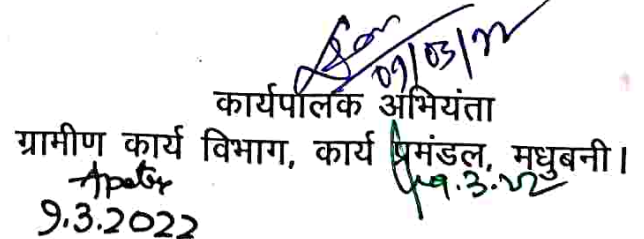 09/03/22
कार्यपालक अभियंता
ग्रामीण कार्य विभाग, कार्य प्रमंडल, मधुबनी।
9.3.22
9.3.2022